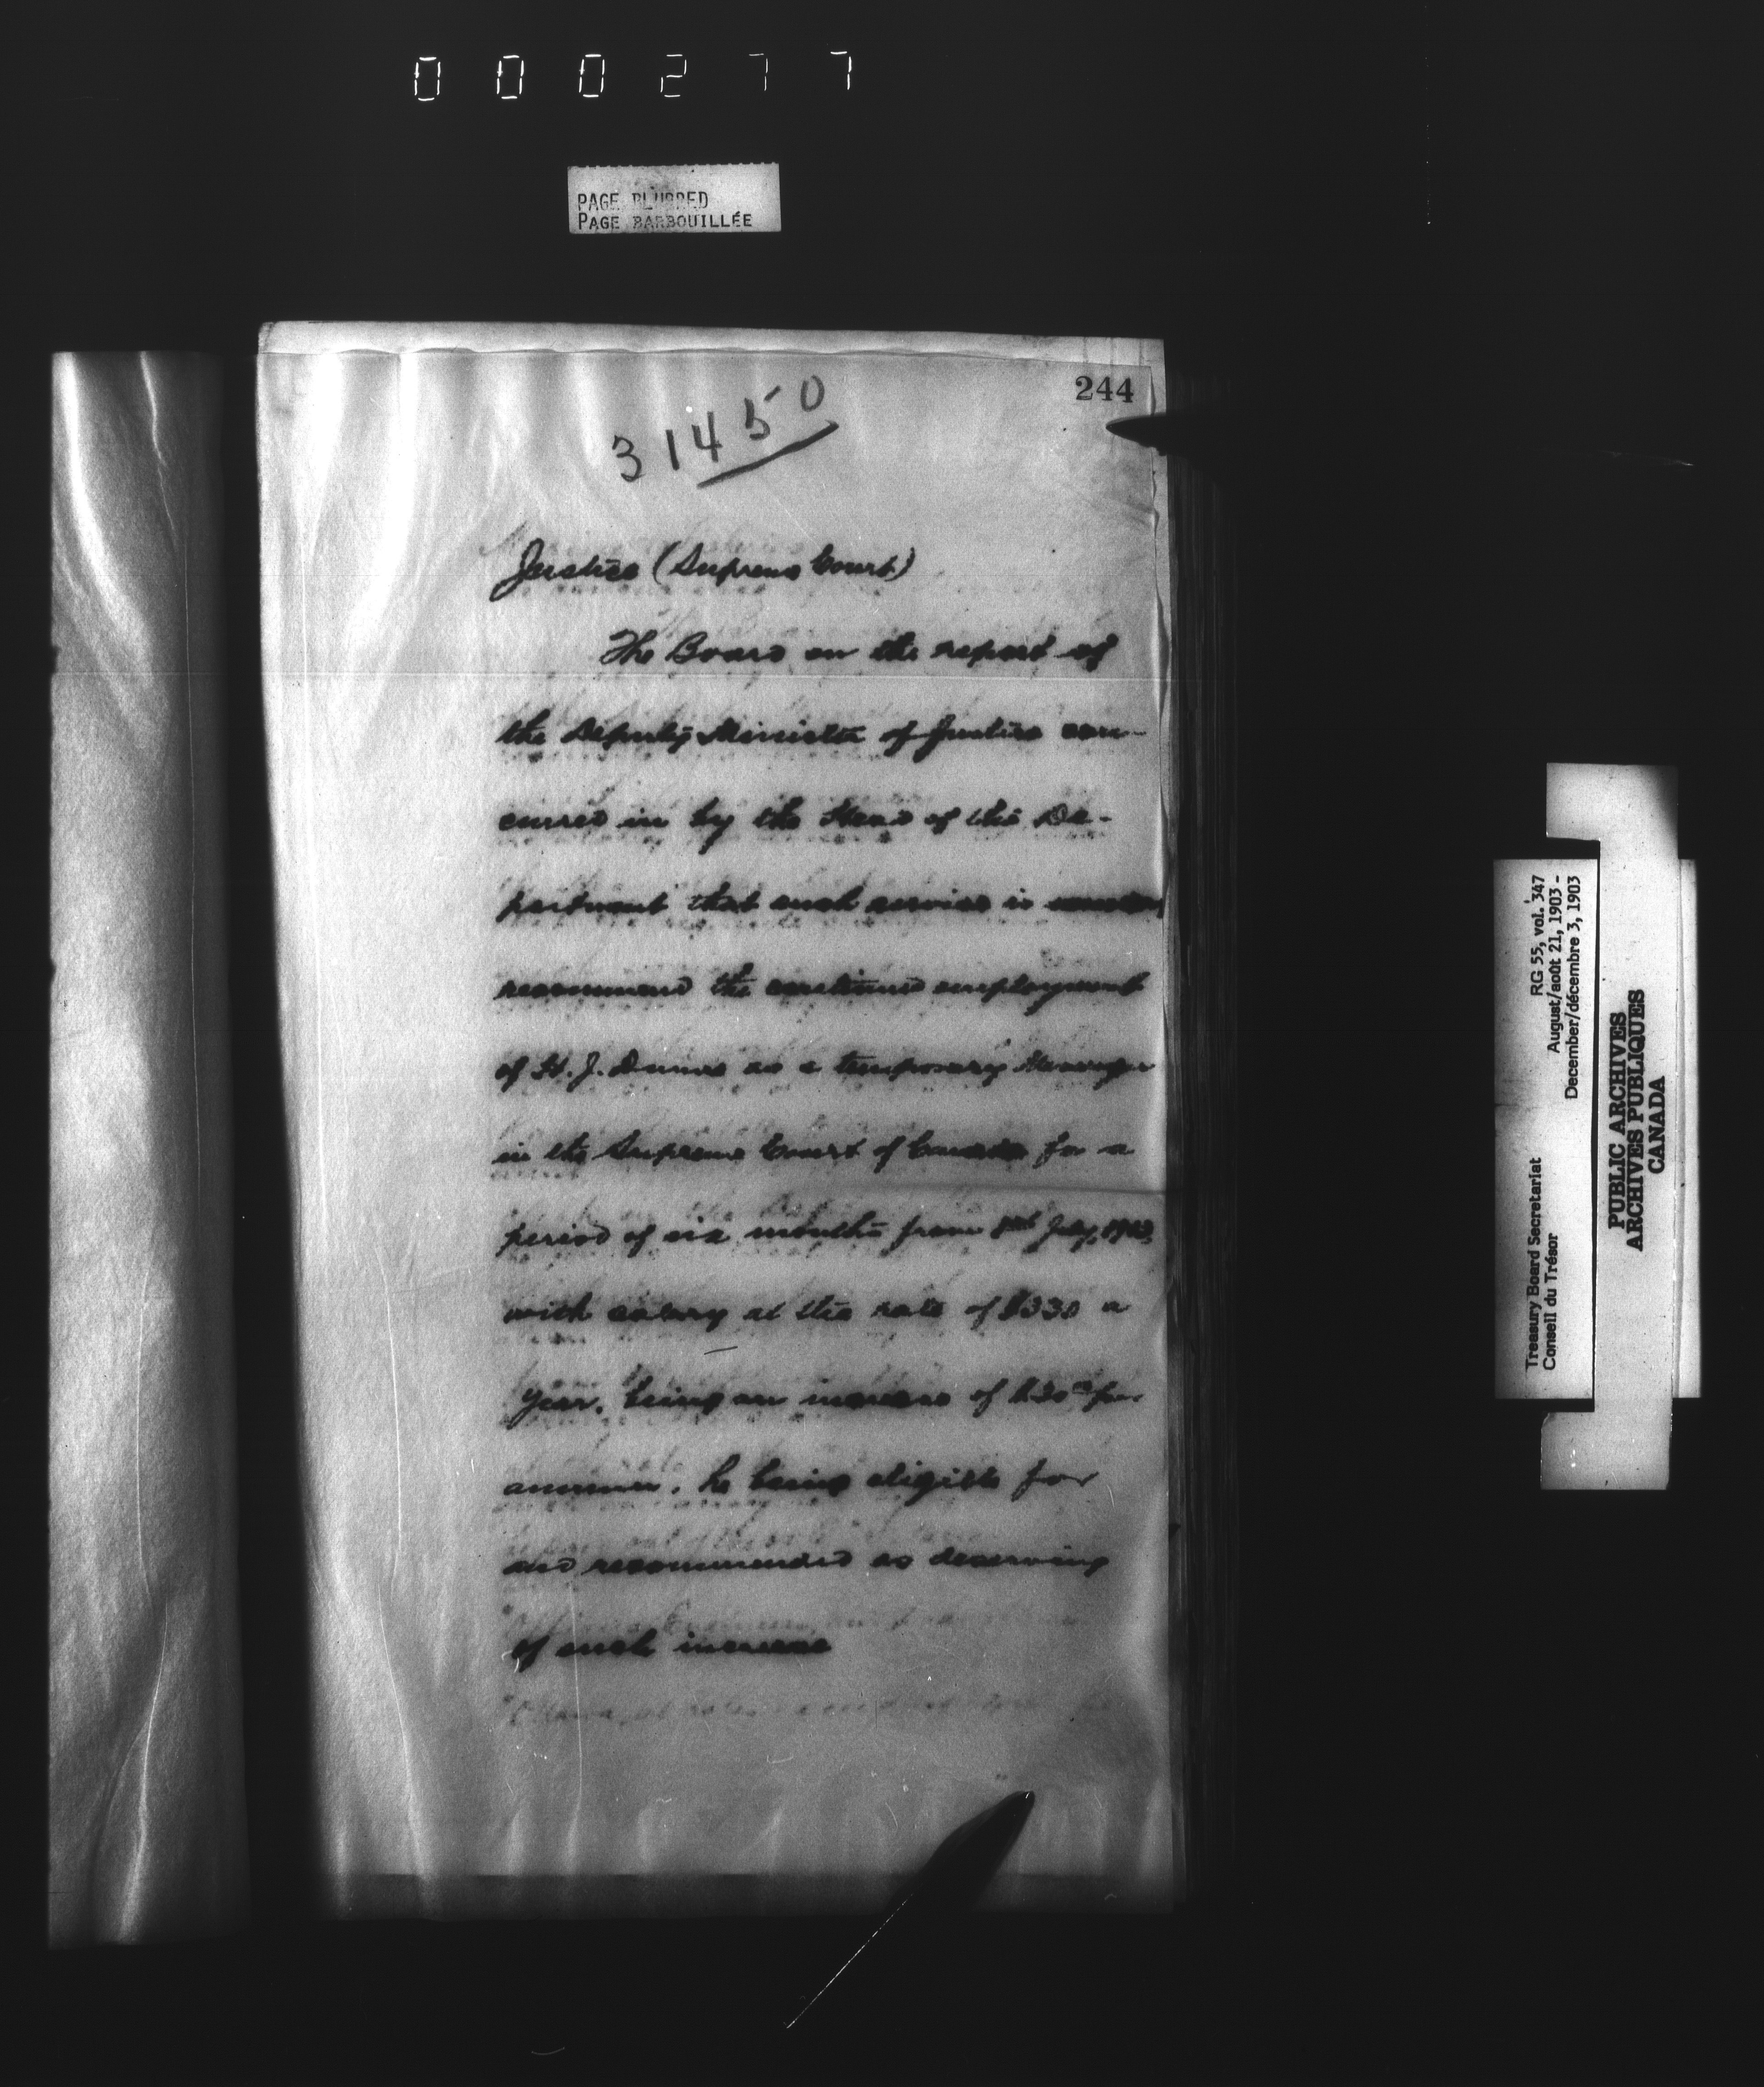 000277
PAGE BLURRED
PAGE BARBOUILLÉE
244
31450
Justice (Supreme Court)
The Board on the report of
the Deputy Minister of Justice con-
curred in by the Head of the De-
partment that such service is
recommend the continued employment
of H. J. as a temporary Messenger
in the Supreme Court of Canada for a
period of six months from July, 1903,
with salary at the rate of $330 a
year, being an increase of $30 per
annum, he being eligible for
and recommended as deserving
of such increase
Treasury Board Secretariat RG 55, vol. 347
Conseil du Trésor August/août 21, 1903 -
December/décembre 3, 1903
PUBLIC ARCHIVES
ARCHIVES PUBLIQUES
CANADA